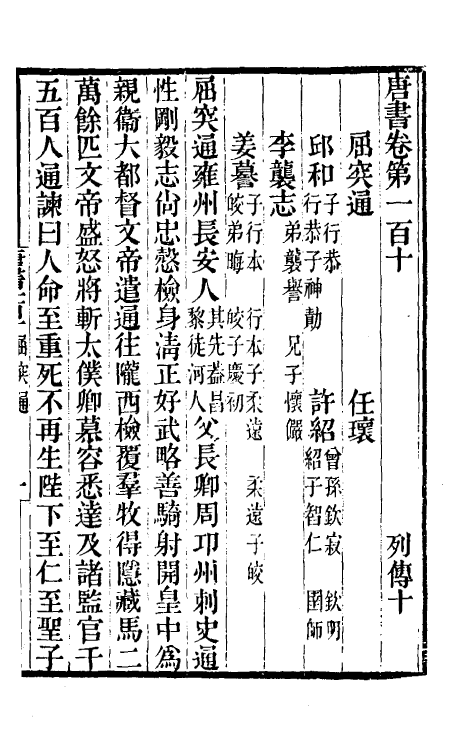 唐書卷第一百十 列傳十
屈突通 任瓌
邱和 子行恭 行恭子神勣 許紹 曾孫欽寂 欽明 紹子智仁 圉師
李襲志 弟襲譽 兄子懷儼
姜謩 子行本 行本子柔遠 柔遠子皎 皎弟晦 皎子慶初
屈突通雍州長安人其先蓋昌黎徒河人父長卿周卭州刺史通
性剛毅志尙忠慤檢身淸正好武略善騎射開皇中爲
親衞大都督文帝遣通往隴西檢覆羣牧得隱藏馬二
萬餘匹文帝盛怒將斬太僕卿慕容悉達及諸監官千
五百人通諫曰人命至重死不再生陛下至仁至聖子
屈突通 一